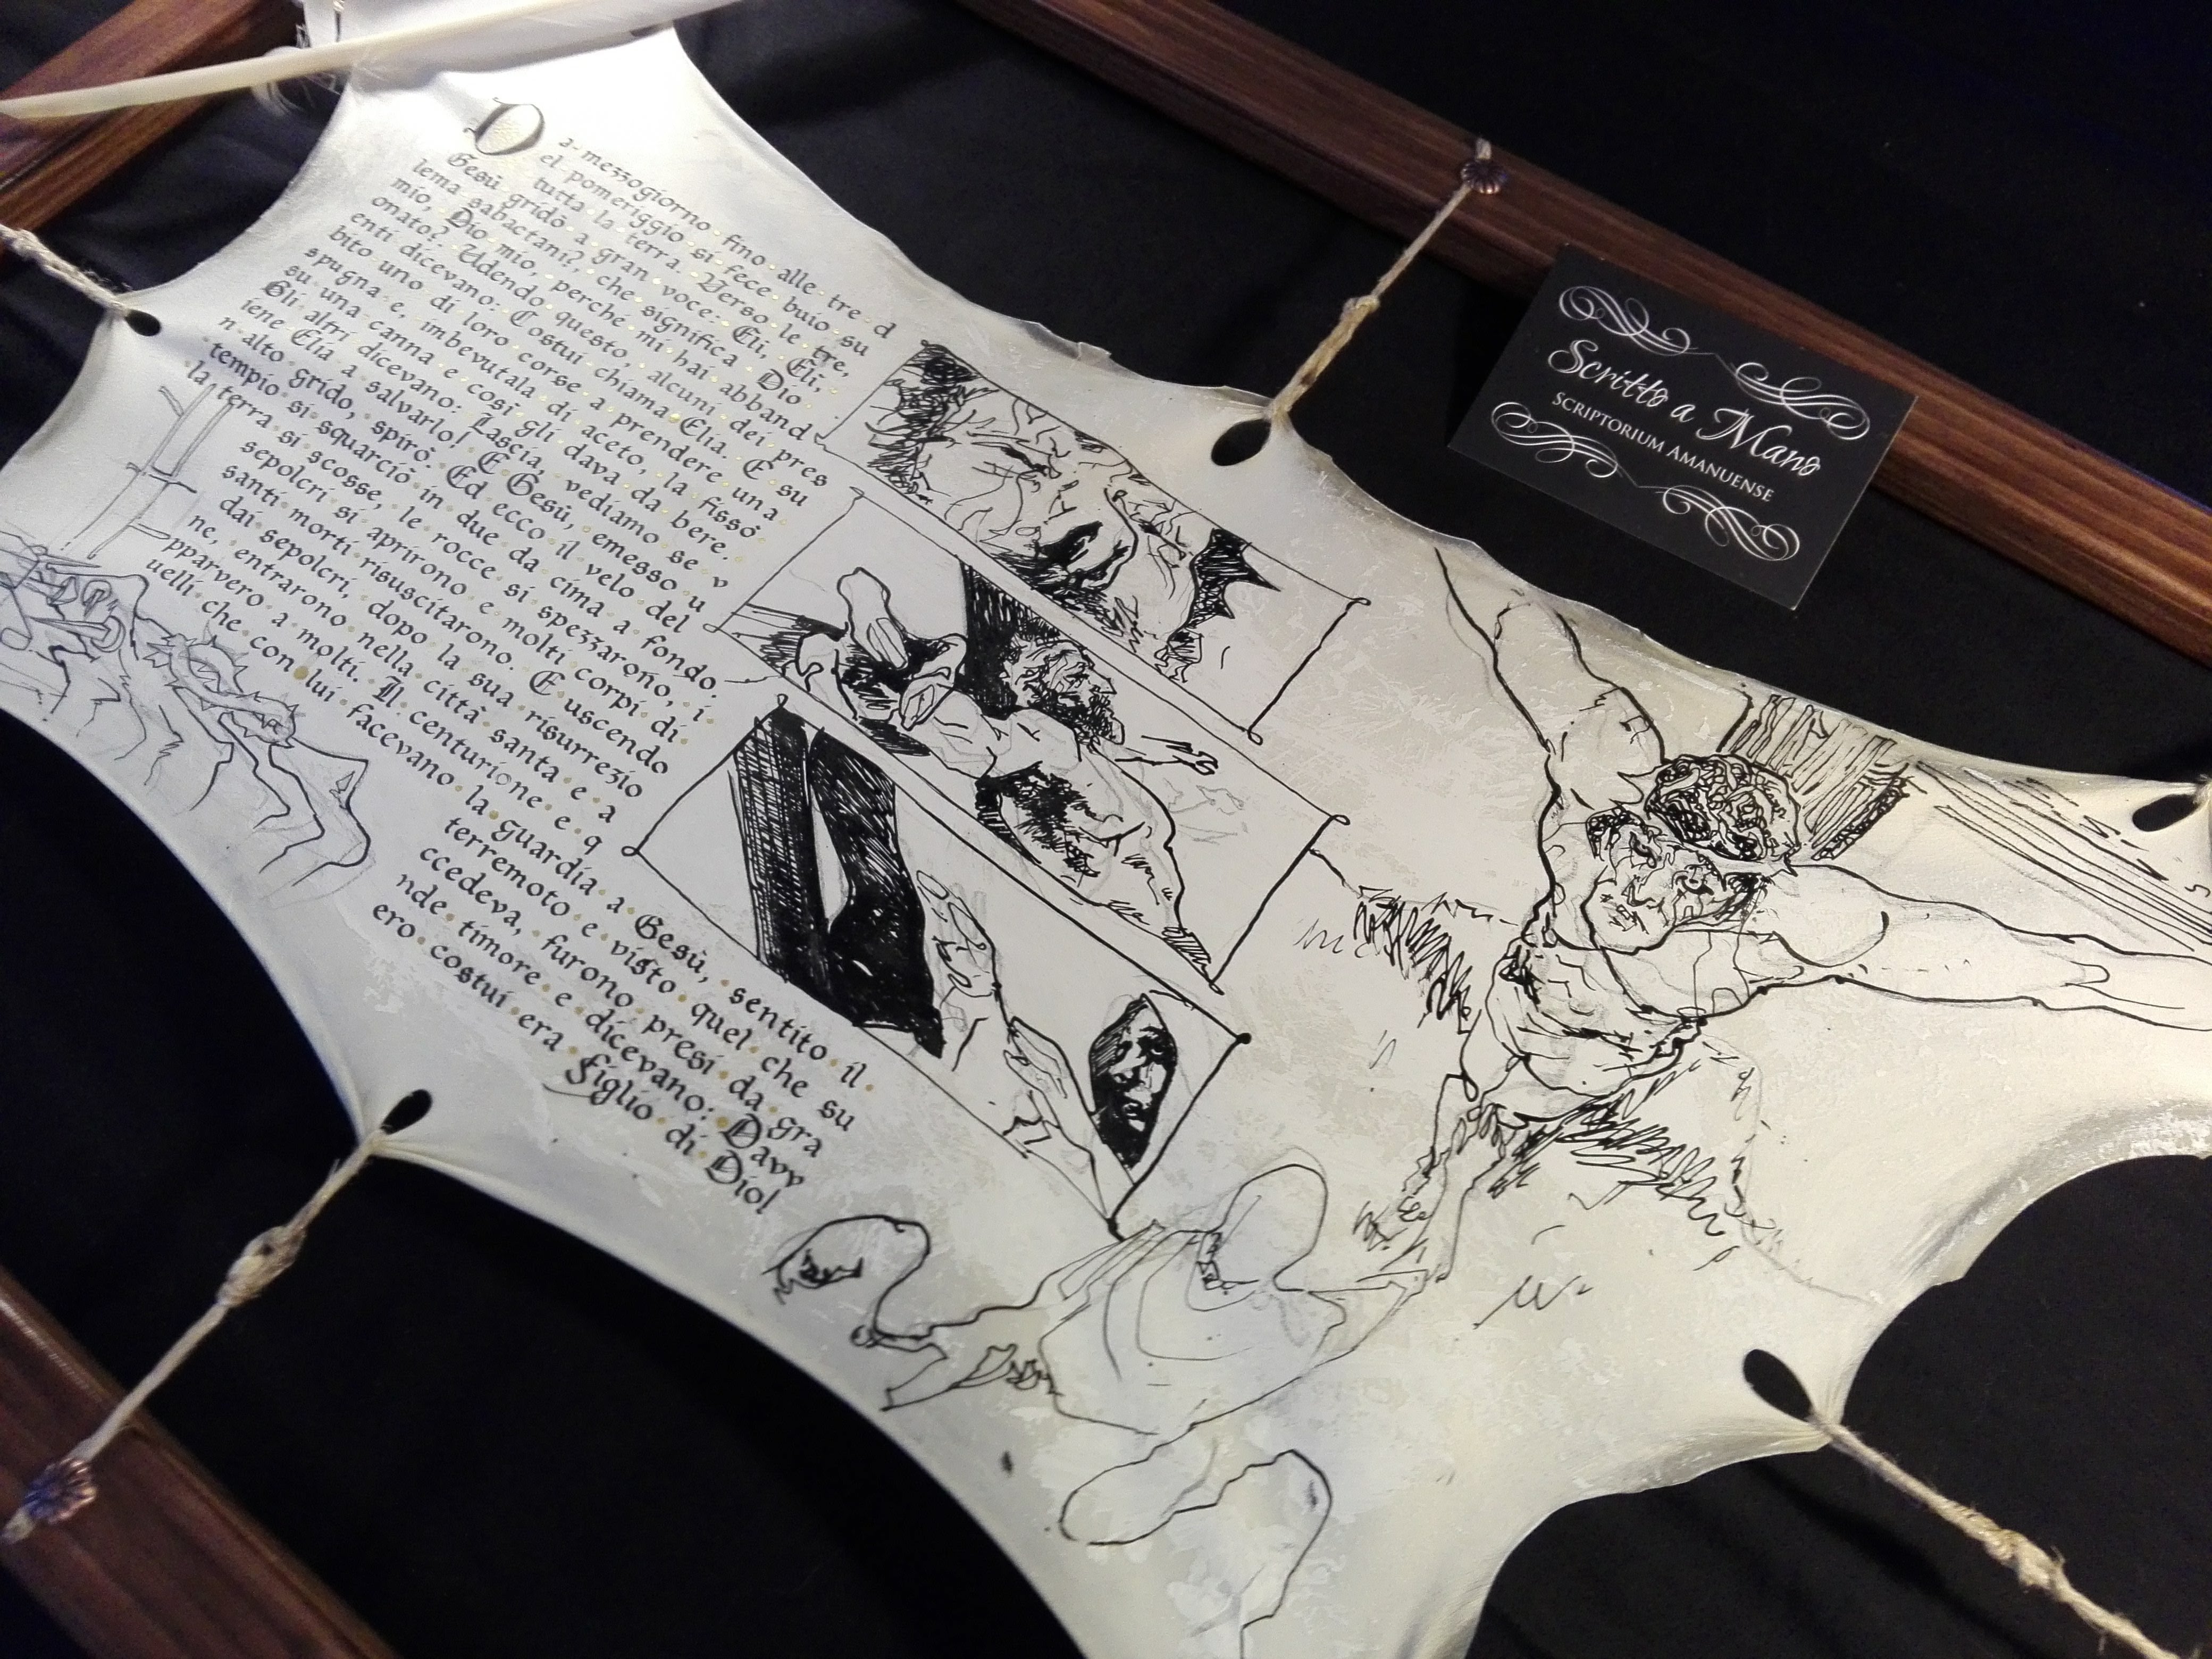 Da·mezzogiorno·fino·alle·tre·d
el·pomeriggio·si·fece·buio·su
tutta·la·terra.·Verso·le·tre,
Gesù·gridò·a·gran·voce:·Elì,·Elì,
lema·sabactani?,·che·significa·Dio
mio,·Dio·mio,·perché·mi·hai·abband
onato?·Udendo·questo,·alcuni·dei·pres
enti·dicevano:·Costui·chiama·Elia.·E·su
bito·uno·di·loro·corse·a·prendere·una
spugna·e,·imbevutala·di·aceto,·la·fissò
su·una·canna·e·così·gli·dava·da·bere.
Gli·altri·dicevano:·Lascia,·vediamo·se·v
iene·Elia·a·salvarlo!·E·Gesù,·emesso·u
n·alto·grido,·spirò.·Ed·ecco·il·velo·del
tempio·si·squarciò·in·due·da·cima·a·fondo,
la·terra·si·scosse,·le·rocce·si·spezzarono,·i
sepolcri·si·aprirono·e·molti·corpi·di
santi·morti·risuscitarono.·E·uscendo
dai·sepolcri,·dopo·la·sua·risurrezio
ne,·entrarono·nella·città·santa·e·a
pparvero·a·molti.·Il·centurione·e·q
uelli·che·con·lui·facevano·la·guardia·a·Gesù,·sentito·il
terremoto·e·visto·quel·che·su
ccedeva,·furono·presi·da·gra
nde·timore·e·dicevano:·Davv
ero·costui·era·figlio·di·Dio!
Scritto a Mano
SCRIPTORIUM AMANUENSE